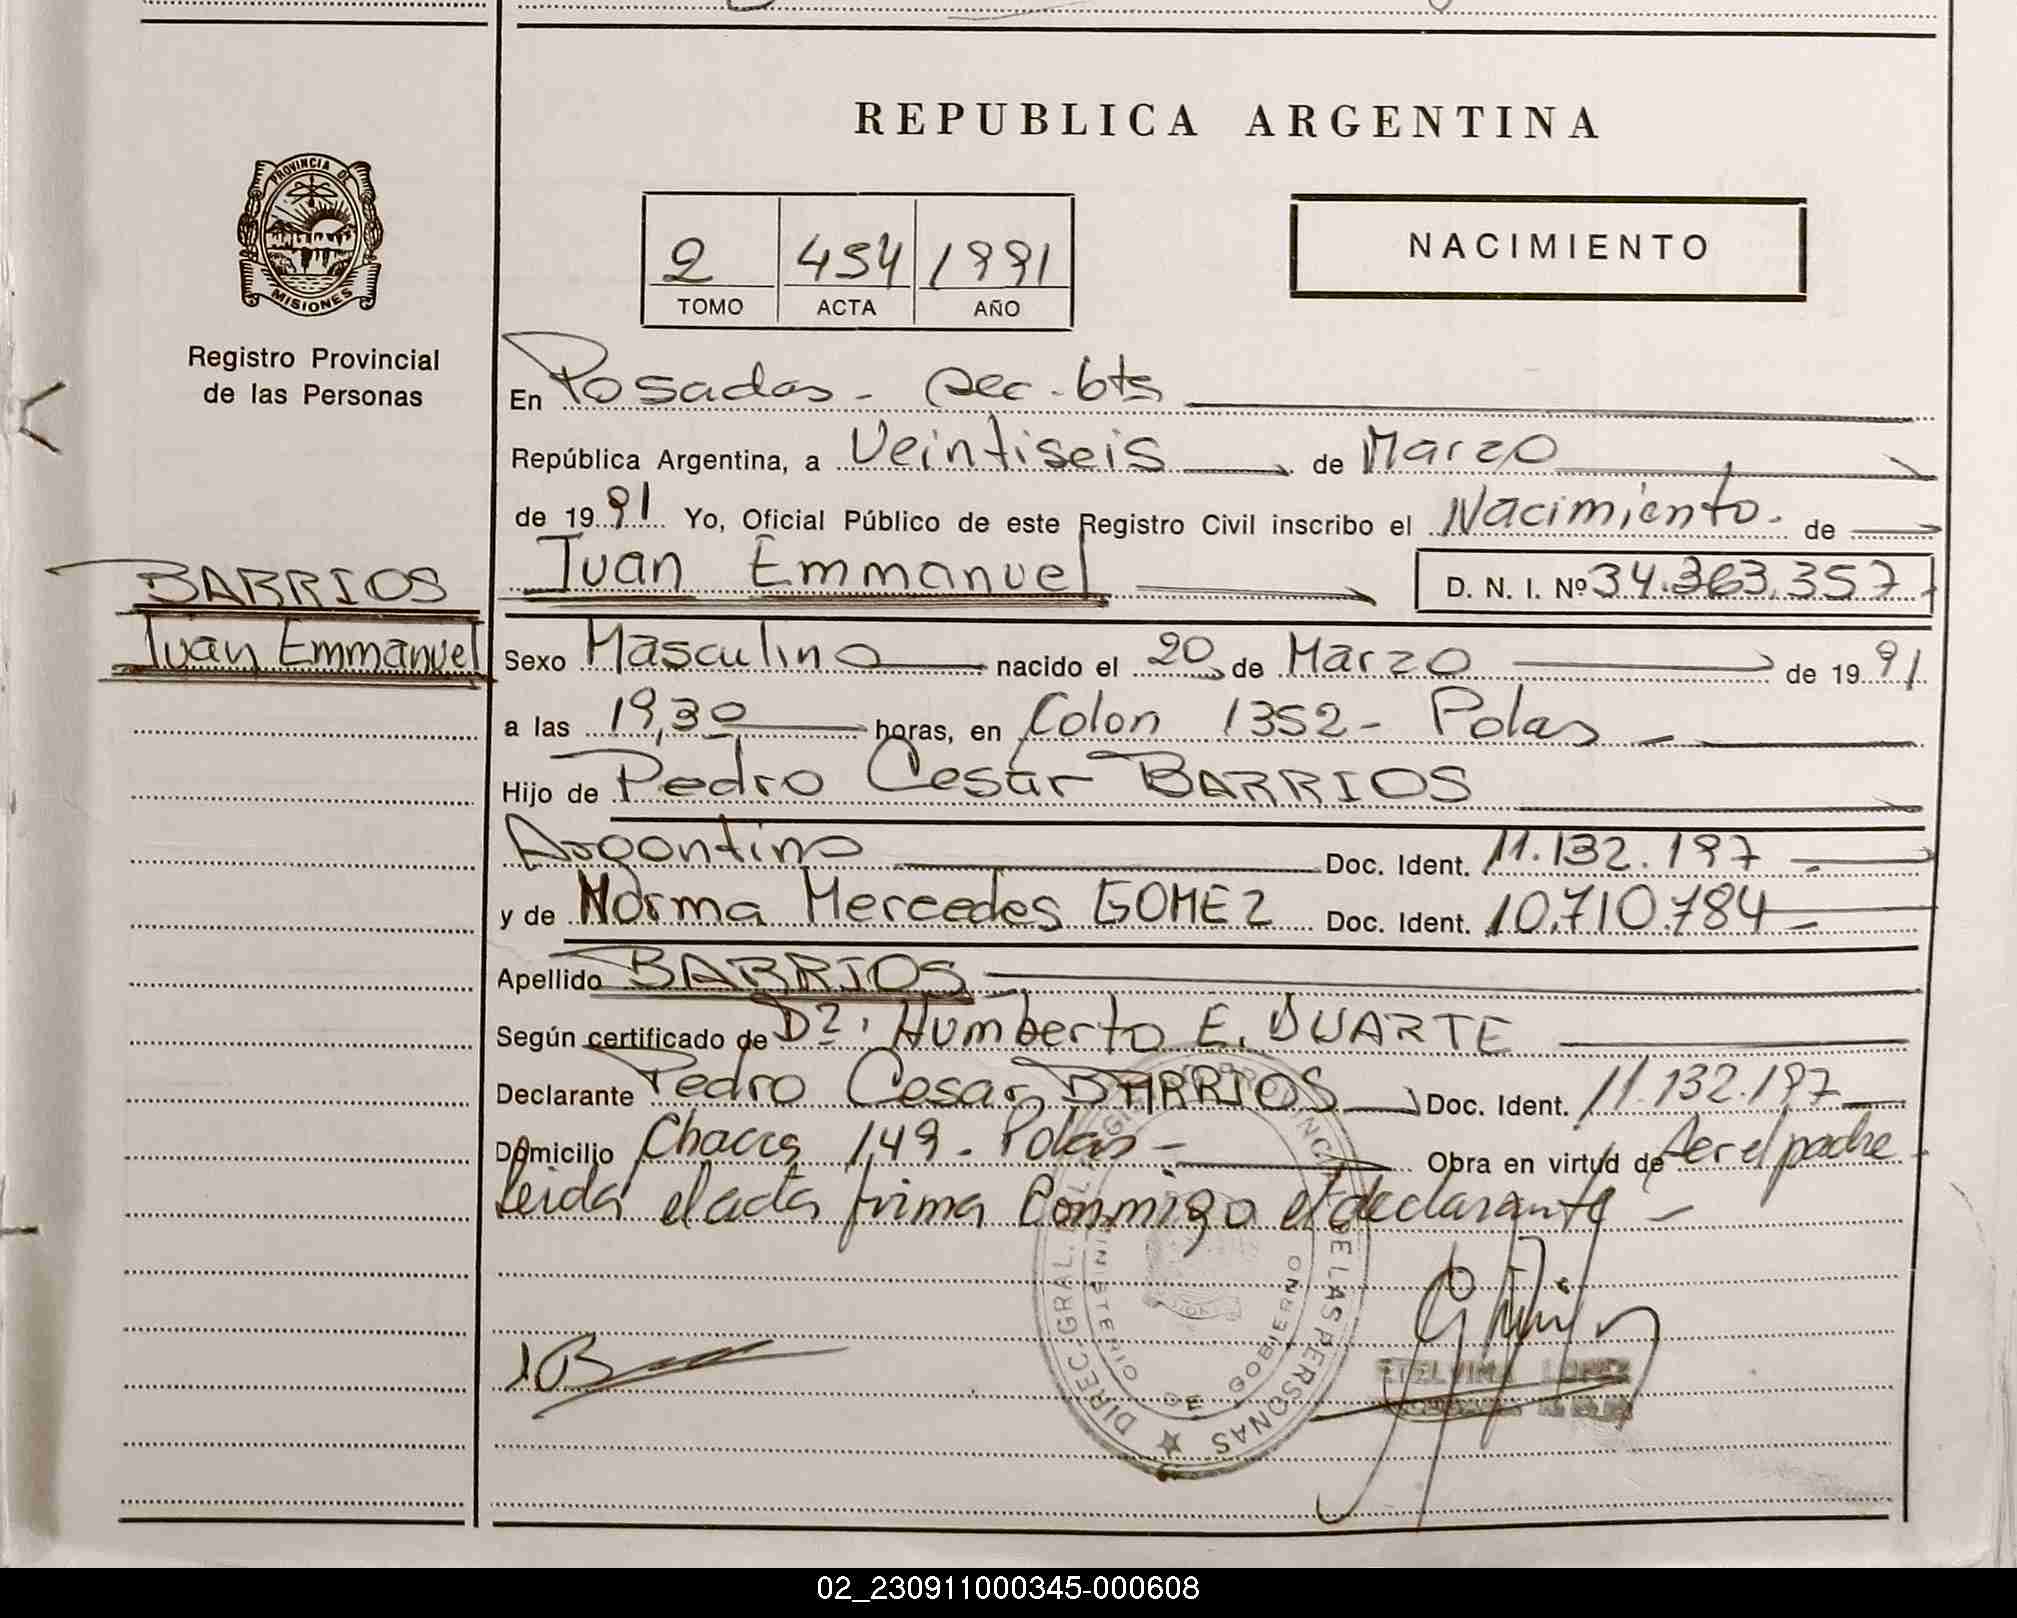 REPUBLICA ARGENTINA
PROVINCIA DE
MISIONES
Registro Provincial
de las Personas
2 454 1991
TOMO ACTA AÑO
NACIMIENTO
En Posadas - sec. bts
República Argentina, a Veintiseis de Marzo
de 1991 Yo, Oficial Público de este Registro Civil inscribo el Nacimiento. de
BARRIOS
Juan Emmanuel
Juan Emmanuel D. N. I. Nº 34.363.357
Sexo Masculino nacido el 20 de Marzo de 1991
a las 19,30 horas, en Colon 1352 - Pdas
Hijo de Pedro Cesar BARRIOS
Argentino Doc. Ident. 11.132.197
y de Norma Mercedes GOMEZ Doc. Ident. 10.710.784
Apellido BARRIOS
Según certificado de Dr. Humberto E. DUARTE
Declarante Pedro Cesar BARRIOS Doc. Ident. 11.132.197
Domicilio Chacra 149 - Pdas - Obra en virtud de ser el padre
Leida el acta firma Conmigo el declarante -
DIREC. GRAL. DEL REGISTRO PROVINCIAL DE LAS PERSONAS
MINISTERIO DE GOBIERNO
ETELVINA LOPEZ
02_230911000345-000608